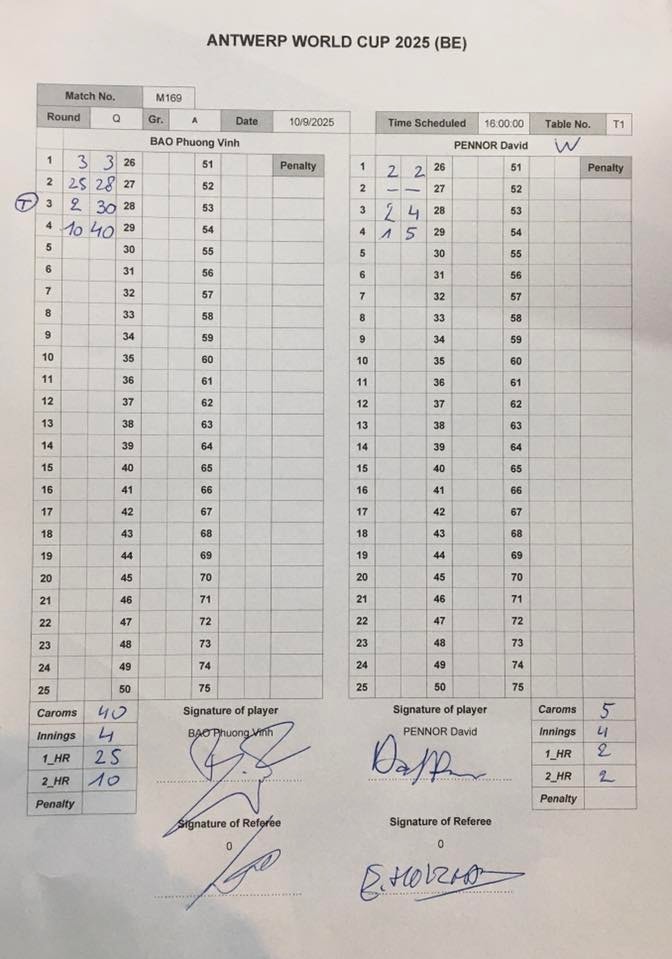 ANTWERP WORLD CUP 2025 (BE)
Match No. M169
Round Q Gr. A Date 10/9/2025 Time Scheduled 16:00:00 Table No. T1
BAO Phuong Vinh PENNOR David W
1 3 3 26 51 Penalty 1 2 2 26 51 Penalty
2 25 28 27 52 2 – – 27 52
T 3 2 30 28 53 3 2 4 28 53
4 10 40 29 54 4 1 5 29 54
5 30 55 5 30 55
6 31 56 6 31 56
7 32 57 7 32 57
8 33 58 8 33 58
9 34 59 9 34 59
10 35 60 10 35 60
11 36 61 11 36 61
12 37 62 12 37 62
13 38 63 13 38 63
14 39 64 14 39 64
15 40 65 15 40 65
16 41 66 16 41 66
17 42 67 17 42 67
18 43 68 18 43 68
19 44 69 19 44 69
20 45 70 20 45 70
21 46 71 21 46 71
22 47 72 22 47 72
23 48 73 23 48 73
24 49 74 24 49 74
25 50 75 25 50 75
Caroms 40 Signature of player Signature of player Caroms 5
Innings 4 BAO Phuong Vinh PENNOR David Innings 4
1_HR 25 1_HR 2
2_HR 10 2_HR 2
Penalty Penalty
Signature of Referee Signature of Referee
0 0